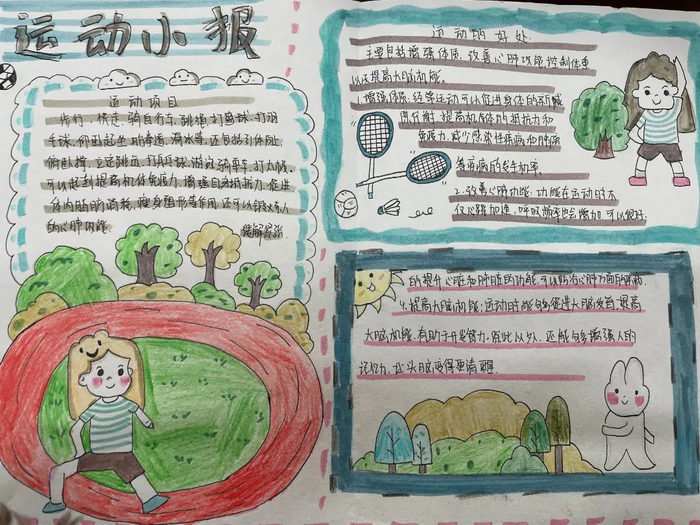 运动小报
运动项目
步行，快走，骑自行车，跳绳，打篮球，打羽
毛球，仰卧起坐，跑步道，滑冰等，还包括引体向上，
俯卧撑，立定跳远，打乒乓球，游泳，骑单车，打太极，
可以起到提高机体免疫力，增强自身抵抗力，促进
体内脂肪消耗，瘦身塑形等作用，还可以锻炼人
的心肺功能
缓解紧张
运动的好处
主要包括增强体质，改善心肺功能，控制体重
以及提高大脑机能。
1.增强体质，经常运动可以促进身体的新陈
代谢，提高机体的抵抗力和
免疫力，减少感染性疾病和肿瘤
等疾病的发生机率。
2.改善心肺功能，功能在运动时不
仅心跳加速，呼吸频率也会增加，可以很好
的提升心脏和肺脏的功能，可以防治心肺方面的疾病。
4.提高大脑机能：运动时能够促进大脑发育，提高
大脑机能，有助于开发智力，除此以外，还能够增强人的
记忆力，让头脑变得更清醒。